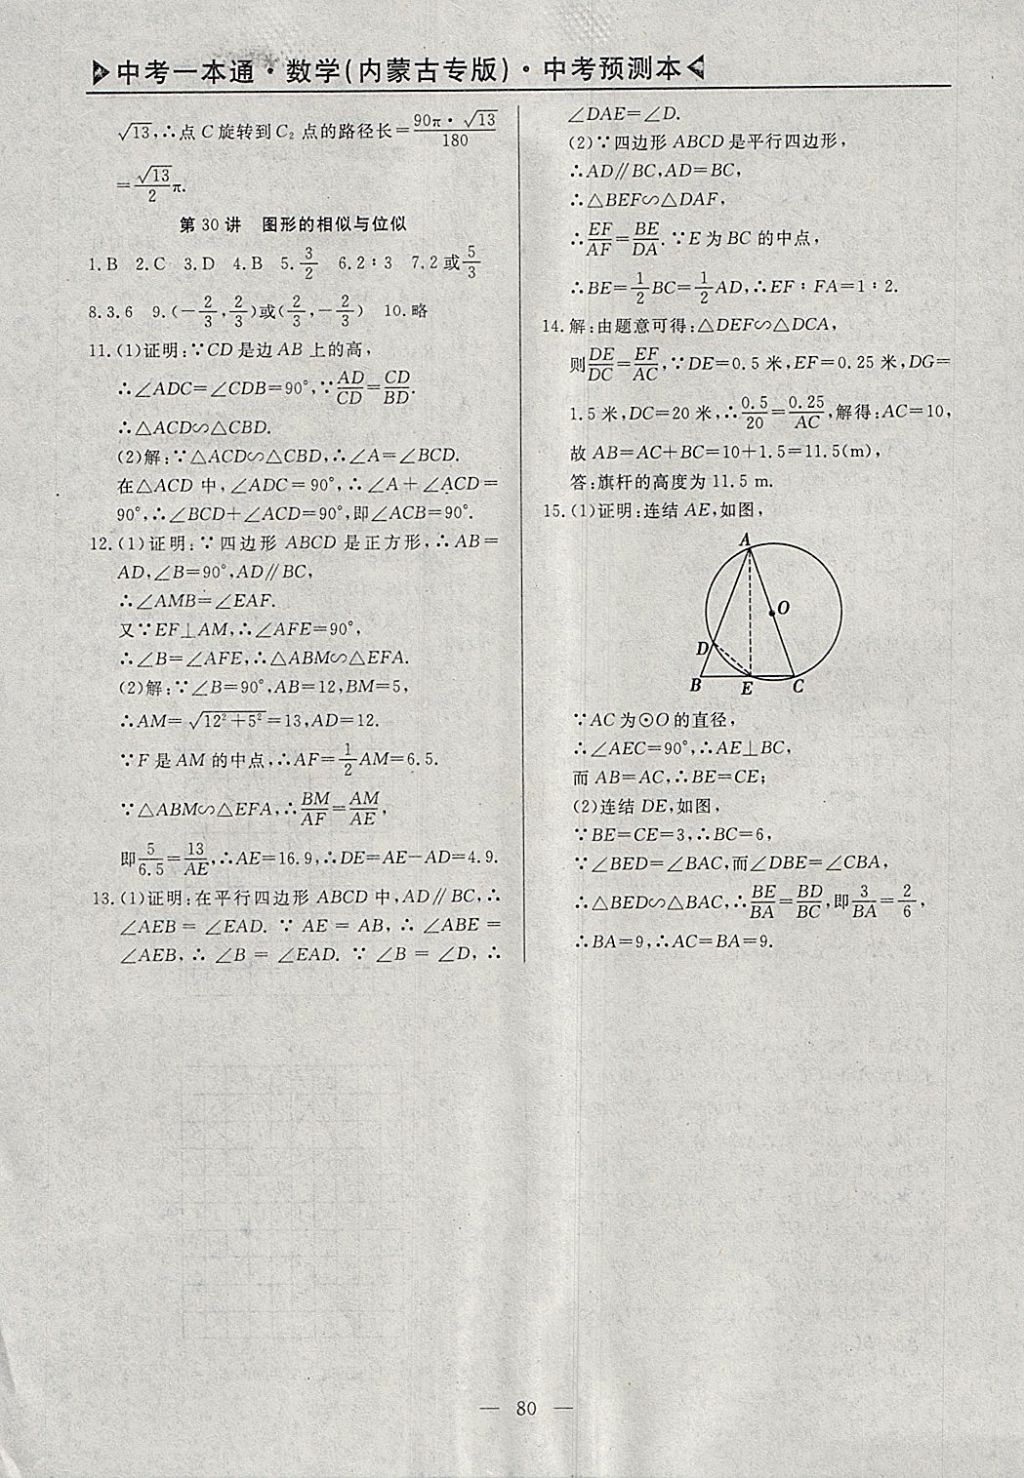 中考一本通·数学(内蒙古专版)·中考预测本
√13,∴点 C 旋转到 C₂ 点的路径长=90π·√13/180
=√13/2π.
第 30 讲 图形的相似与位似
1.B 2.C 3.D 4.B 5.3/2 6.2∶3 7.2或5/3
8.3.6 9.(-2/3,2/3)或(2/3,-2/3) 10.略
11.(1)证明:∵CD是边AB上的高,
∴∠ADC=∠CDB=90°,∵AD/CD=CD/BD.
∴△ACD∽△CBD.
(2)解:∵△ACD∽△CBD,∴∠A=∠BCD.
在△ACD 中,∠ADC=90°,∴∠A+∠ACD=
90°,∴∠BCD+∠ACD=90°,即∠ACB=90°.
12.(1)证明:∵四边形 ABCD 是正方形,∴AB=
AD,∠B=90°,AD∥BC,
∴∠AMB=∠EAF.
又∵EF⊥AM,∴∠AFE=90°,
∴∠B=∠AFE,∴△ABM∽△EFA.
(2)解:∵∠B=90°,AB=12,BM=5,
∴AM=√(12²+5²)=13,AD=12.
∵F 是 AM 的中点,∴AF=1/2AM=6.5.
∵△ABM∽△EFA,∴BM/AF=AM/AE,
即5/6.5=13/AE,∴AE=16.9,∴DE=AE-AD=4.9.
13.(1)证明:在平行四边形 ABCD 中,AD∥BC,∴
∠AEB=∠EAD. ∵ AE=AB,∴∠ABE=
∠AEB,∴∠B=∠EAD. ∵∠B=∠D,∴
∠DAE=∠D.
(2)∵四边形 ABCD 是平行四边形,
∴AD∥BC,AD=BC,
∴△BEF∽△DAF,
∴EF/AF=BE/DA.∵E为BC的中点,
∴BE=1/2BC=1/2AD,∴EF∶FA=1∶2.
14.解:由题意可得:△DEF∽△DCA,
则DE/DC=EF/AC,∵DE=0.5米,EF=0.25米,DG=
1.5米,DC=20米,∴0.5/20=0.25/AC,解得:AC=10,
故 AB=AC+BC=10+1.5=11.5(m),
答:旗杆的高度为 11.5 m.
15.(1)证明:连结AE,如图,
A
O
D
B E C
∵AC为⊙O的直径,
∴∠AEC=90°,∴AE⊥BC,
而 AB=AC,∴BE=CE;
(2)连结DE,如图,
∵BE=CE=3,∴BC=6,
∵∠BED=∠BAC,而∠DBE=∠CBA,
∴△BED∽△BAC,∴BE/BA=BD/BC,即3/BA=2/6,
∴BA=9,∴AC=BA=9.
— 80 —